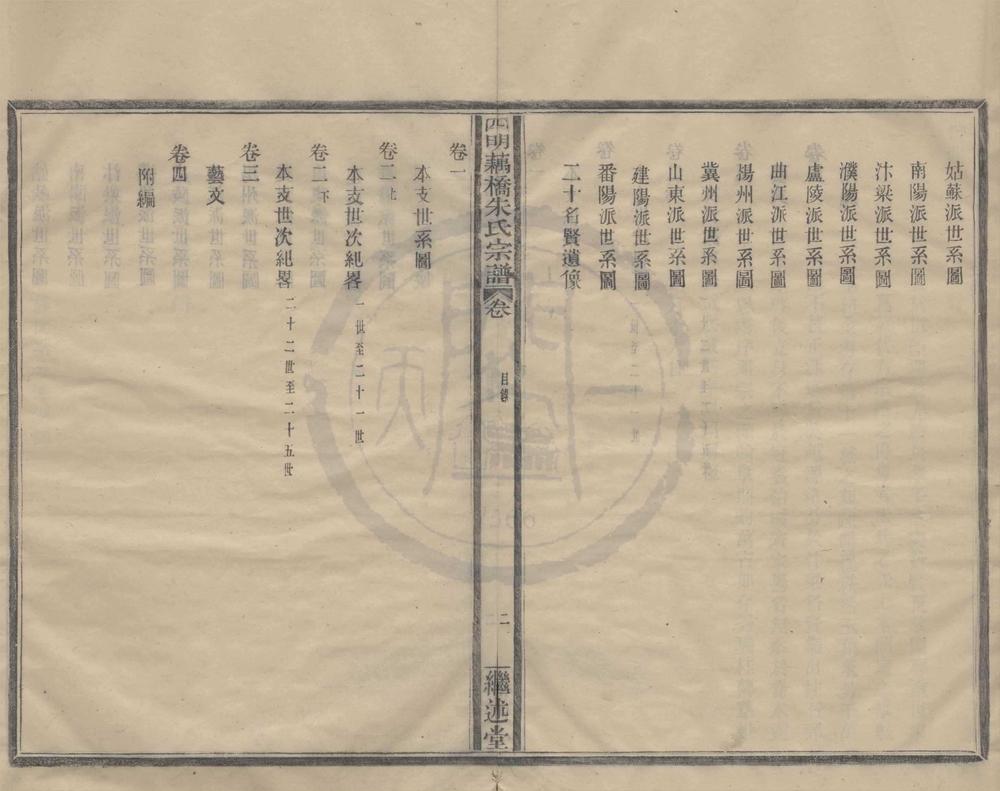 姑蘇派世系圖
南陽派世系圖
汴梁派世系圖
濮陽派世系圖
廬陵派世系圖
曲江派世系圖
揚州派世系圖
冀州派世系圖
山東派世系圖
建陽派世系圖
番陽派世系圖
二十名賢遺像
四明藕橋朱氏宗譜 卷 目錄 二 繼述堂
卷一
本支世系圖
卷二上
本支世次紀畧 一世至二十一世
卷二下
本支世次紀畧 二十二世至二十五世
卷三
藝文
卷四
附編